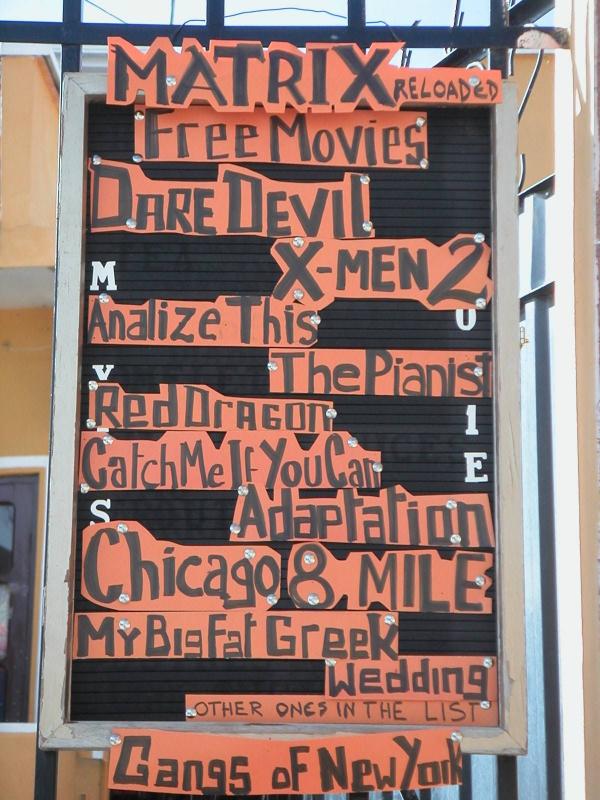 MATRIX RELOADED
Free Movies
DARE DEVIl
X-MEN 2
M
Analize This
O
The Pianist
V
Red DRAGON
I
Catch Me If You Can
E
S
Adaptation
Chicago 8 MILE
My Big Fat Greek
Wedding
OTHER ONES IN THE LIST
Gangs oF New York